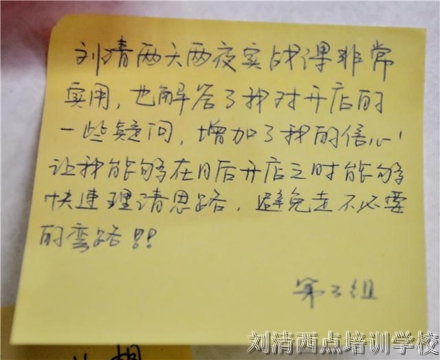 刘清两天两夜实战课非常
实用，也解答了我对开店的
一些疑问，增加了我的信心，
让我能够在日后开店之时能够
快速理清思路，避免走不必要
的弯路!!
第三组
刘清西点培训学校